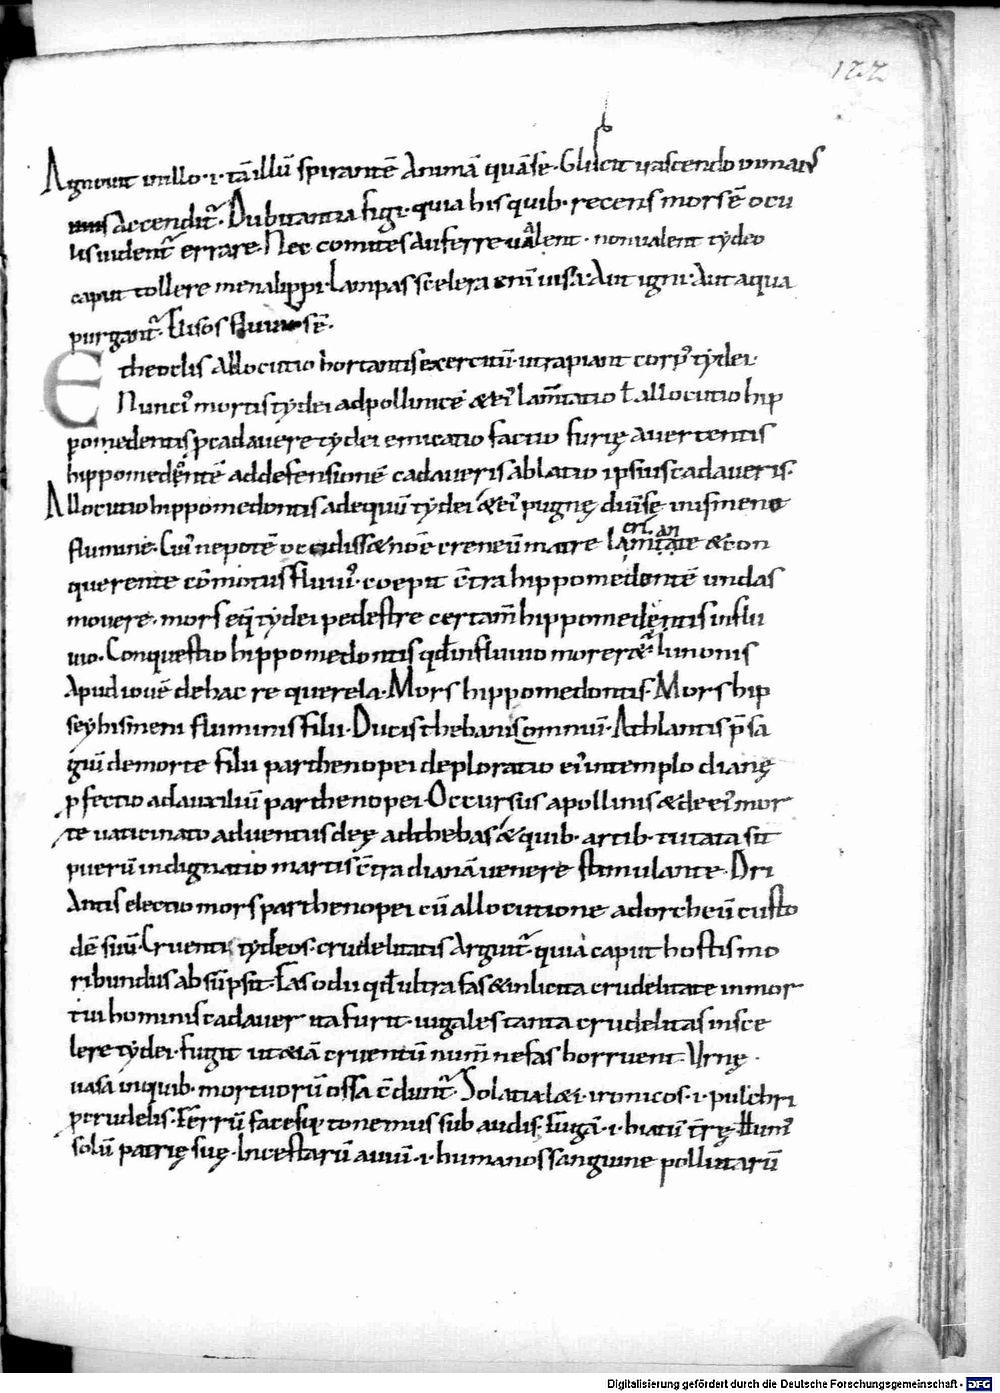 122
Agnouit in illo ·i· tā illū spirantē Animā quā se · Gliscit uascendo in maius
accenditᷣ · Dubitantia figi · quia his quib · recens mors ē ocu
lis uidentᷣ errare · Nec comites auferre ualent · non ualent tydeo
caput tollere menalippi · Lampas scelera enī uisa · Aut igni · Aut aqua
purgantᷣ · Elisos sē ·
Etheoclis Allocutio hortantis exercitū · ut rapiant corpꝰ tydei ·
Nunciꝰ mortis tydei ad pollinicē & eiꝰ lam̄tatio ł allocutio hip
pomedentis p cadauere tydei e mutatio factio furię auertentis
hippomedentē ad defensionē cadaueris ablatio ipsius cadaueris ·
Allocutio hippomedontis ad equū tydei & eiꝰ pugnę diūsę in ismeno
flumine · Cuiꝰ nepotē occidiss& noīe creneū matre lacrimante & con
querente cōmotus fluuiꝰ · coepit c̄tra hippomedontē undas
mouere · mors eq̄ tydei pedestre certam̄ hippomedentis in flu
uio · Conquestio hippomedontis qđ in fluuio morer&ᷣ Iunonis
Apud iouē de hac re querela · Mors hippomedontis · Mors hip
sey hismeni fluminis filii · Ducis thebanis commun̄ · Athlantis p̄sa
giū de morte filii parthenopei deploratio eiꝰ in templo dianę
ꝑfectio ad auxiliū parthenopei · Occursus apollinis & de eiꝰ mor
te uaticinato aduentus deę ad thebas & quib · artib · tutata sit
puerū indignatio martis c̄tra dianā uenere stimulante · Dri
Antis electio mors parthenopei cū allocutione ad orcheū custo
dē suū · Cruenti tydeos · crudelitatis Arguitᷣ · quia caput hostis mo
ribundus absūpsit · Fas odii qđ ultra fas & inlicita crudelitate in mor
tui hominis cadauer ita furit · uigales tanta crudelitas in sce
lere tydei · fugit ut &iā cruentū num̄ nefas horruent · Urnę ·
uasa in quib · mortuorū ossa c̄duntᷣ · Solatia l&i · ironicos ·i· pulchri
ꝓ crudelis · Ferrū facesq; tonemus sub audis · Fugā ·i· hiatū t̄rę
solū patrię suę · Incestarū auiū ·i· humano sanguine pollutarū
Digitalisierung gefördert durch die Deutsche Forschungsgemeinschaft - DFG